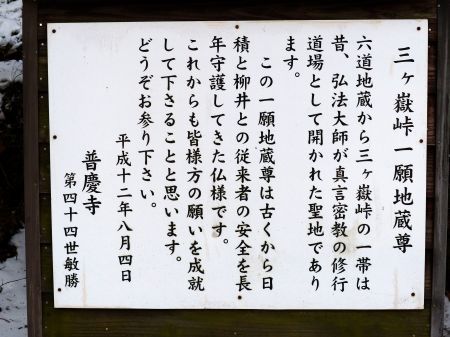 三ヶ嶽峠一願地蔵尊
六道地蔵から三ヶ嶽峠の一帯は
昔、弘法大師が真言密教の修行
道場として開かれた聖地であり
ます。
この一願地蔵尊は古くから日
積と柳井との従来者の安全を長
年守護してきた仏様です。
これからも皆様方の願いを成就
して下さることと思います。
どうぞお参り下さい。
平成十二年八月四日
普慶寺
第四十四世敏勝